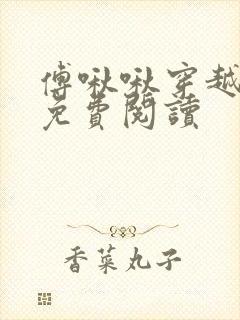 傅啾啾穿越
免費閱讀
香菜丸子